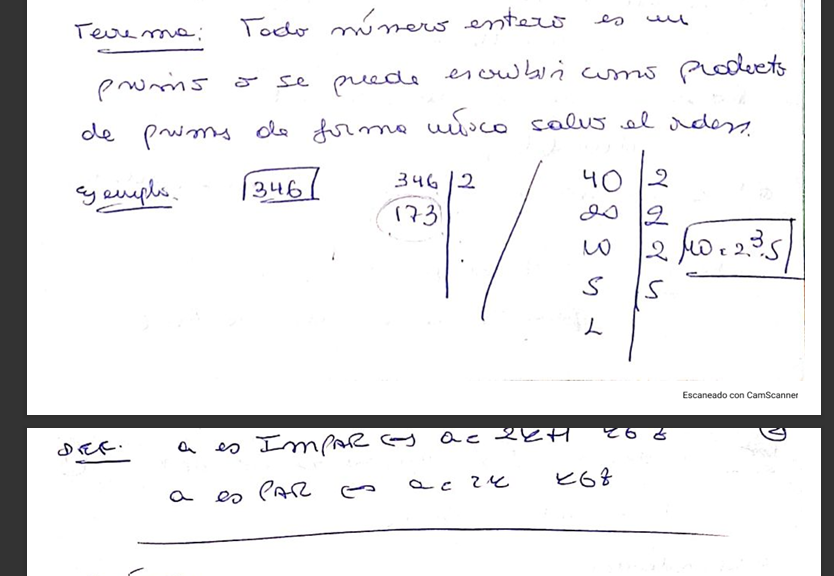 Teorema: Todo número entero es un
primo o se puede escribir como producto
de primos de forma única salvo el orden.
Ejemplo. 346 346 | 2 / 40 | 2
173 20 | 2
10 | 2 40 = 2³·5
5 | 5
1
Escaneado con CamScanner
DEF. a es IMPAR ⇔ a = 2k+1 k∈Z
a es PAR ⇔ a = 2k k∈Z